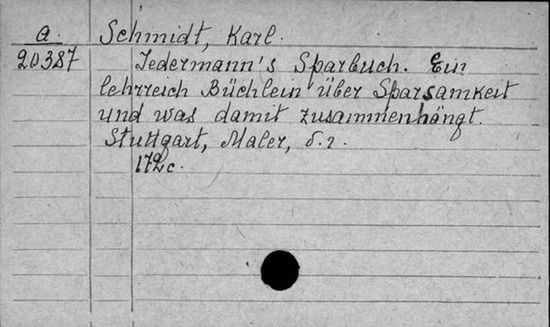 a. Schmidt, Karl.
20387 Jedermann's Sparbuch. Ein
lehrreich Büchlein über Sparsamkeit
und was damit zusammenhängt.
Stuttgart, Maler, s.
172c.